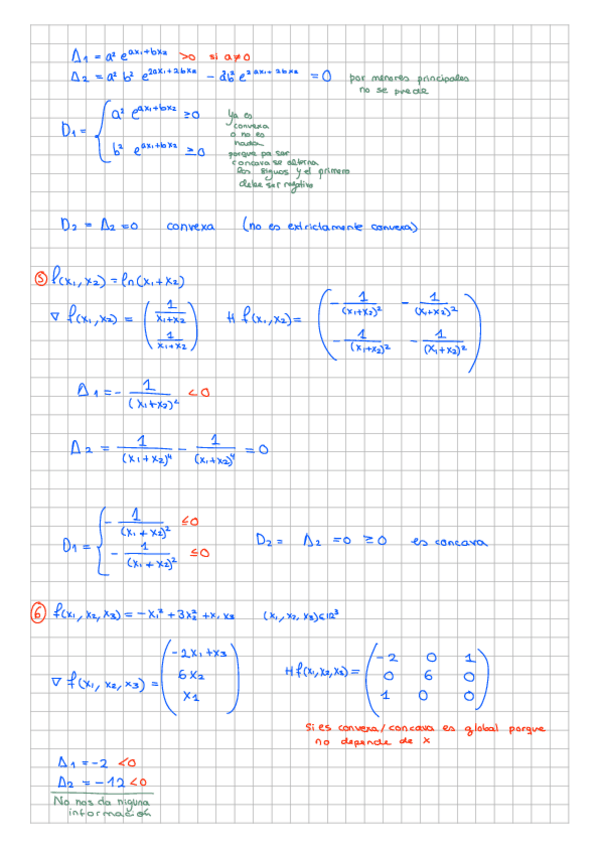 Δ1 = a² e^(ax1+bx2) >0 si a≠0
Δ2 = a² b² e^(2ax1+2bx2) - a²b² e^(2ax1+2bx2) = 0
por menores principales
no se puede
D1 = { a² e^(ax1+bx2) ≥0
b² e^(ax1+bx2) ≥0
Ya es
convexa
o no es
nada
porque pa ser
concava se alterna
los signos y el primero
debe ser negativo
D2 = Δ2 = 0 convexa (no es extrictamente convexa)
⑤ f(x1, x2) = ln(x1+x2)
∇ f(x1, x2) = ( 1/(x1+x2) ; 1/(x1+x2) ) H f(x1, x2) = ( -1/(x1+x2)² -1/(x1+x2)² ; -1/(x1+x2)² -1/(x1+x2)² )
Δ1 = - 1/(x1+x2)² <0
Δ2 = 1/(x1+x2)⁴ - 1/(x1+x2)⁴ = 0
D1 = { - 1/(x1+x2)² ≤0
- 1/(x1+x2)² ≤0
D2 = Δ2 = 0 ≥ 0 es concava
⑥ f(x1, x2, x3) = -x1² + 3x2² + x1 x3 (x1, x2, x3) ∈ ℝ³
∇ f(x1, x2, x3) = ( -2x1+x3 ; 6x2 ; x1 ) H f(x1, x2, x3) = ( -2 0 1 ; 0 6 0 ; 1 0 0 )
si es convexa/concava es global porque
no depende de x
Δ1 = -2 <0
Δ2 = -12 <0
No nos da niguna
información